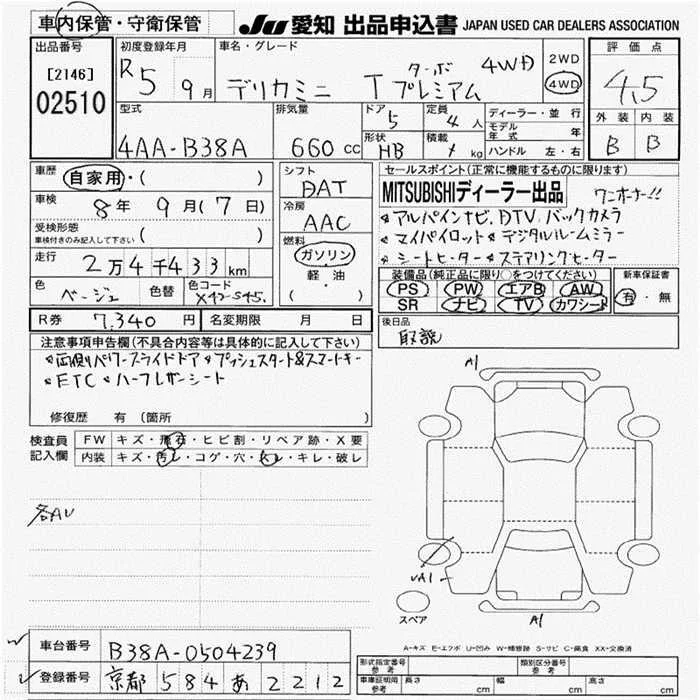 車内保管・守衛保管
JU愛知 出品申込書 JAPAN USED CAR DEALERS ASSOCIATION
出品番号 初度登録年月 車名・グレード 評価点
[2146] R5 9月 デリカミニ T ターボ プレミアム 4WD 2WD 4WD 4,5
02510
型式 排気量 ドア 定員 ディーラー・並行 外装 内装
4AA-B38A 660cc 5 4人 モデル年式 年 B B
形状 HB 積載 kg ハンドル 左・右
車歴 自家用・( ) シフト DAT セールスポイント(正常に機能するものに限ります)
車検 8年 9月(7日) 冷房 AAC MITSUBISHIディーラー出品 ワンオーナー!!
アルパインナビ、DTV、バックカメラ
受検形態 車検付きのみ記入して下さい ( ) 燃料 ガソリン 軽・油 ( ) マイパイロット デジタルルームミラー
シートヒーター ステアリングヒーター
走行 2万4千433km 装備品(純正品に限り○をつけてください) 新車保証書
PS PW エアB AW 有・無
色 ベージュ 色替 色コード SR ナビ TV カワシート
R券 7,340円 名変期限 月 日 後日品
取説
注意事項申告欄(不具合内容等は具体的に記入して下さい)
両側パワースライドドア プッシュスタート&スマートキー
ETC ハーフレザーシート
修復歴 有 (箇所 )
検査員記入欄 FW キズ・飛石・ヒビ割・リペア跡・X要
内装 キズ・汚レ・コゲ・穴・スレ・キレ・破レ
各AU
A1
UA1
A1
スペア
A-キズ E-エクボ U-凹み W-補修跡 S-サビ C-腐食 XX-交換済
車台番号 B38A-0504239
登録番号 京都 584 あ 2212
形式指定番号 参考 類別区分番号 参考
車庫証明用 参考 長さ cm 幅 cm 高さ cm